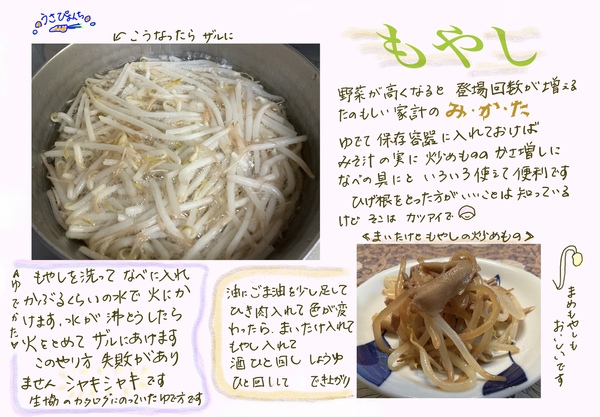 うさぴょんち
こうなったら ザルに
もやし
野菜が高くなると 登場回数が増える
たのもしい 家計の み・か・た
ゆでて 保存容器に入れておけば
みそ汁の実に 炒めものの かさ増しに
なべの具にと いろいろ使えて便利です
ひげ根をとった方がいいことは知っている
けど そこは カツアイで
≪まいたけと もやしの炒めもの≫
♥ゆでかた♥
もやしを洗って なべに入れ
かぶるぐらいの水で 火にか
けます、水が 沸とうしたら
火をとめて ザルにあけます
このやり方 失敗があり
ません シャキシャキです
生協のカタログにのっていたゆで方です
油にごま油を少し足して
ひき肉入れて 色が変
わったら、まいたけ入れて
もやし入れて
酒ひと回し しょうゆ
ひと回しして でき上がり
まめもやしも
おいしいです